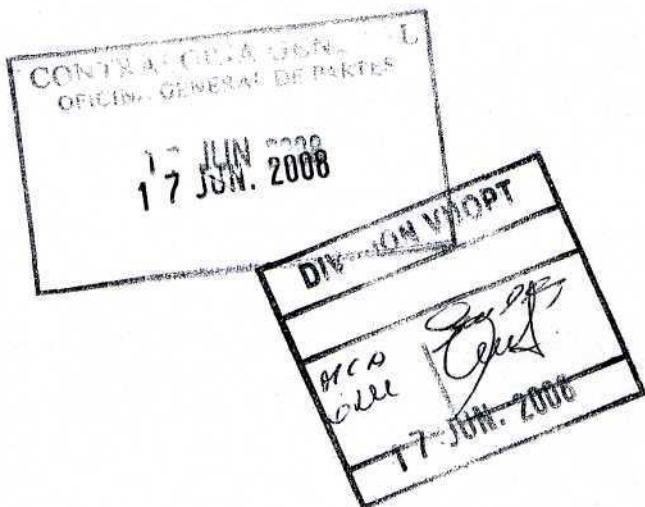 CONTRALORIA GENERAL
OFICINA GENERAL DE PARTES
17 JUN 2008
17 JUN. 2008
DIVISION VUOPT
17 JUN. 2008